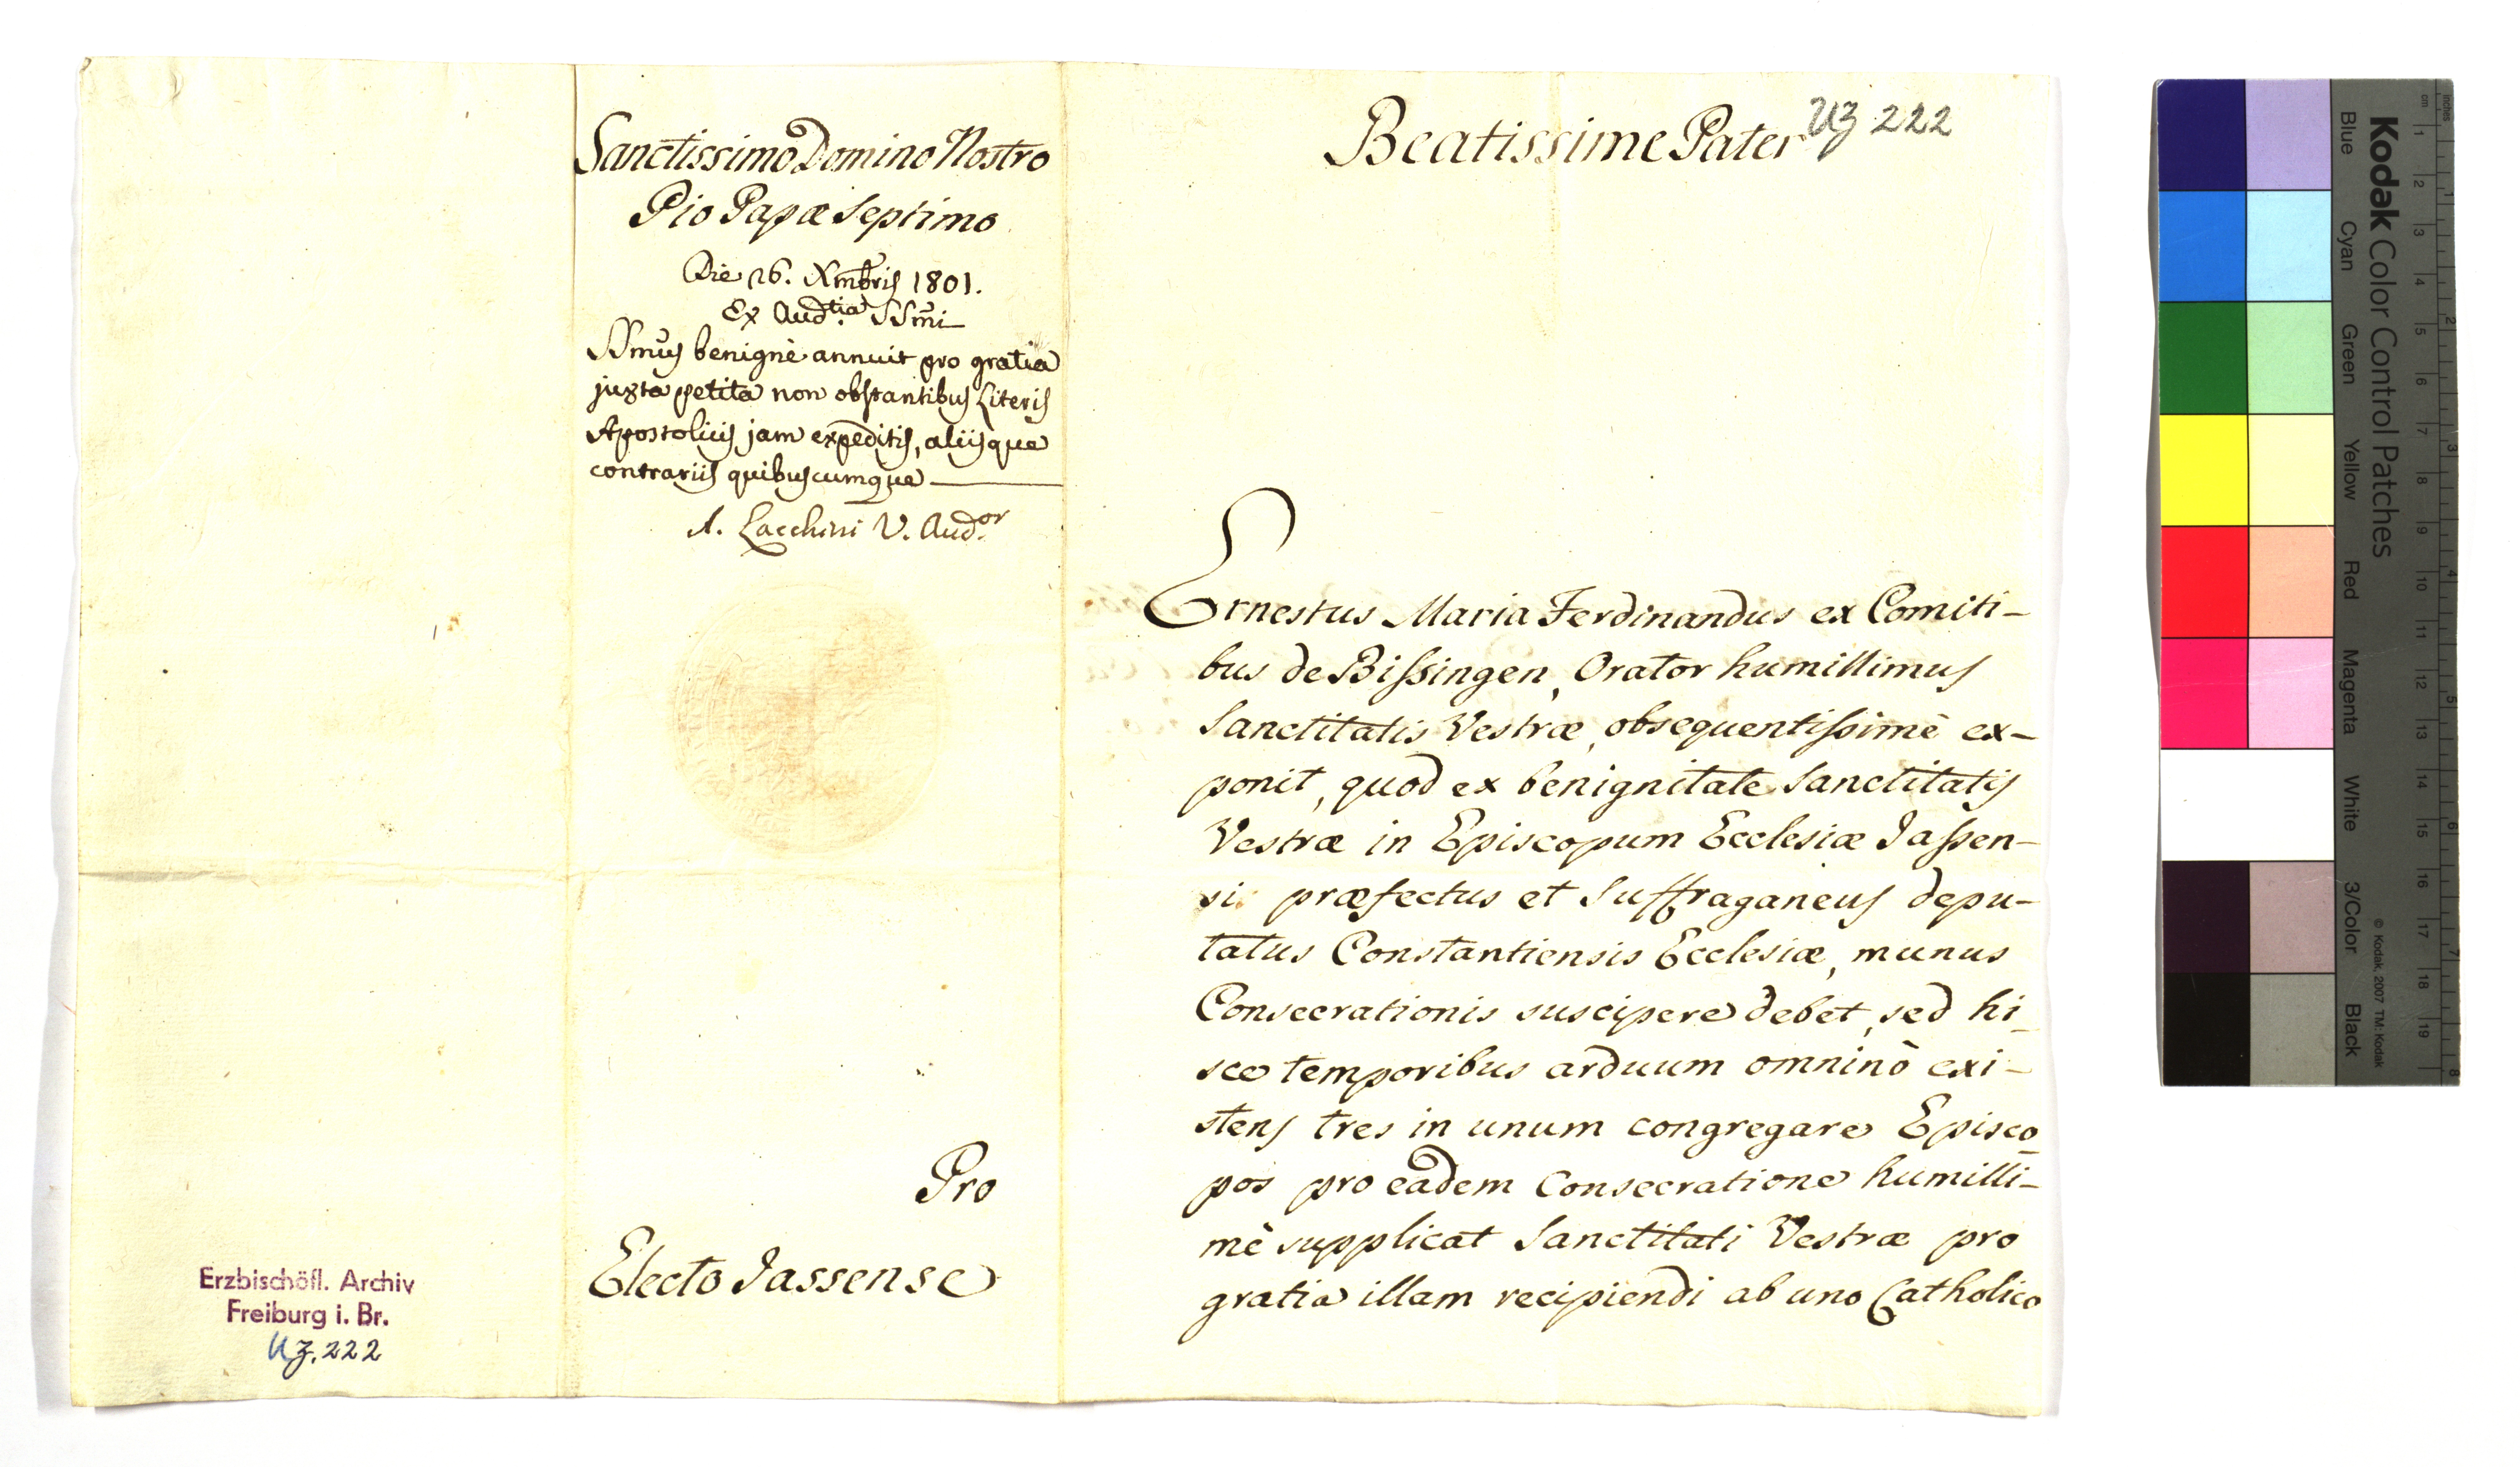 Sanctissimo Domino Nostro
Pio Papæ Septimo
Die 26. Xmbris 1801.
Ex Aud.tia SSmi
SSmus benignè annuit pro gratia
juxta petita non obstantibus Literis
Apostolicis jam expeditis, aliisque
contrariis quibuscumque
A. Lacchini V. Aud.or
Pro
Electo Jassense
Erzbischöfl. Archiv
Freiburg i. Br.
UZ. 222
Beatissime Pater
UZ 222
Ernestus Maria Ferdinandus ex Comiti-
bus de Bissingen, Orator humillimus
Sanctitatis Vestræ, obsequentissimè ex-
ponit, quod ex benignitate Sanctitatis
Vestræ in Episcopum Ecclesiæ Jassen-
si præfectus et Suffraganeus depu-
tatus Constantiensis Ecclesiæ, munus
Consecrationis suscipere debet, sed hi-
sce temporibus arduum omninò exi-
stens tres in unum congregare Episco
pos pro eadem Consecratione humilli-
mè supplicat Sanctitati Vestræ pro
gratia illam recipiendi ab uno Catholico
Kodak Color Control Patches
Blue Cyan Green Yellow Red Magenta White 3/Color Black
© Kodak, 2007 TM: Kodak
cm 1 2 3 4 5 6 7 8 9 10 11 12 13 14 15 16 17 18 19
inches 1 2 3 4 5 6 7 8